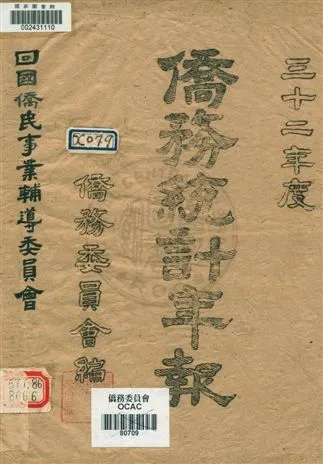 三十二年度
僑務統計年報
僑務委員會編
回國僑民事業輔導委員會
國家圖書館
002431110
X079
577.86
8666
僑務委員會
OCAC
80709